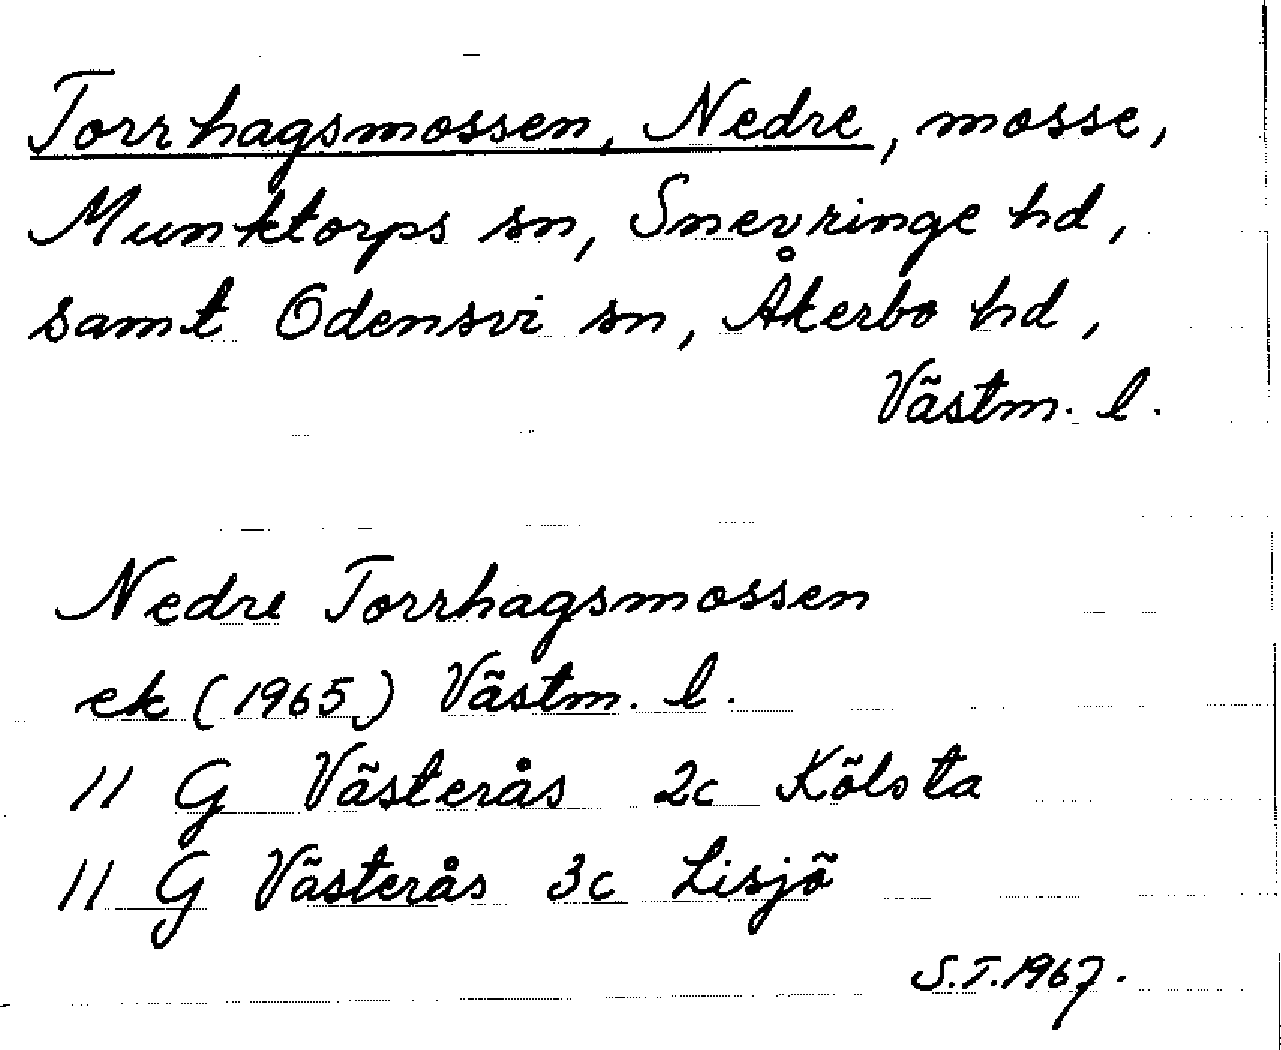 Torrhagsmossen, Nedre, mosse,
Munktorps sn, Snevringe hd,
samt Odensvi sn, Åkerbo hd,
Västm. l.
Nedre Torrhagsmossen
ek (1965) Västm. l.
11 G Västerås 2c Kölsta
11 G Västerås 3c Lisjö
S.T. 1967.